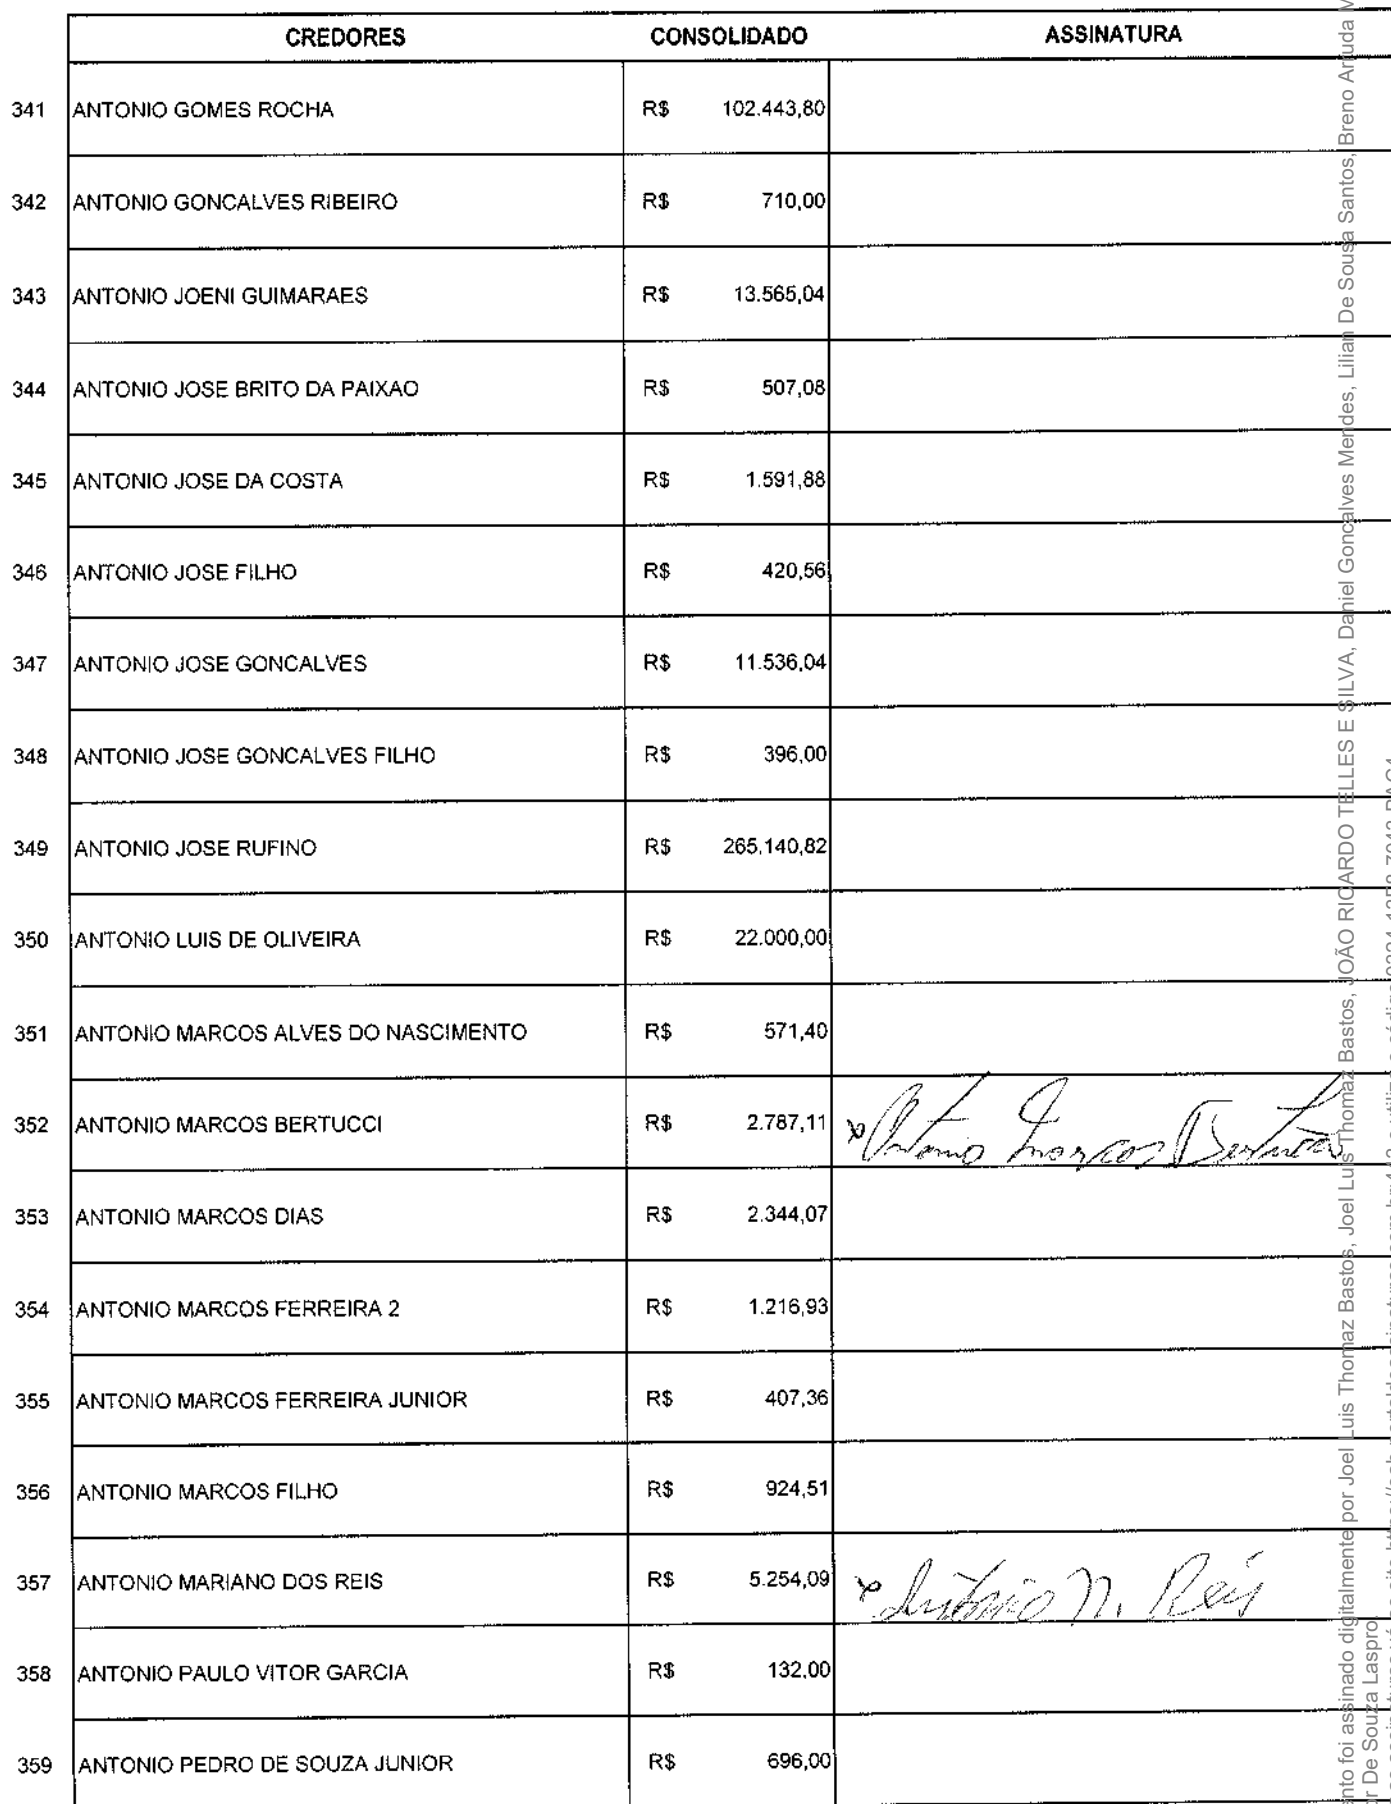 CREDORES CONSOLIDADO ASSINATURA
341 ANTONIO GOMES ROCHA R$ 102.443,80
342 ANTONIO GONCALVES RIBEIRO R$ 710,00
343 ANTONIO JOENI GUIMARAES R$ 13.565,04
344 ANTONIO JOSE BRITO DA PAIXAO R$ 507,08
345 ANTONIO JOSE DA COSTA R$ 1.591,88
346 ANTONIO JOSE FILHO R$ 420,56
347 ANTONIO JOSE GONCALVES R$ 11.536,04
348 ANTONIO JOSE GONCALVES FILHO R$ 396,00
349 ANTONIO JOSE RUFINO R$ 265.140,82
350 ANTONIO LUIS DE OLIVEIRA R$ 22.000,00
351 ANTONIO MARCOS ALVES DO NASCIMENTO R$ 571,40
352 ANTONIO MARCOS BERTUCCI R$ 2.787,11 x Antonio Marcos Bertucci
353 ANTONIO MARCOS DIAS R$ 2.344,07
354 ANTONIO MARCOS FERREIRA 2 R$ 1.216,93
355 ANTONIO MARCOS FERREIRA JUNIOR R$ 407,36
356 ANTONIO MARCOS FILHO R$ 924,51
357 ANTONIO MARIANO DOS REIS R$ 5.254,09 x Antônio M. Reis
358 ANTONIO PAULO VITOR GARCIA R$ 132,00
359 ANTONIO PEDRO DE SOUZA JUNIOR R$ 696,00
nto foi assinado digitalmente por Joel Luis Thomaz Bastos, Joel Luis Thomaz Bastos, JOÃO RICARDO TELLES E SILVA, Daniel Goncalves Mendes, Lilian De Sousa Santos, Breno Arruda M
r De Souza Laspro.